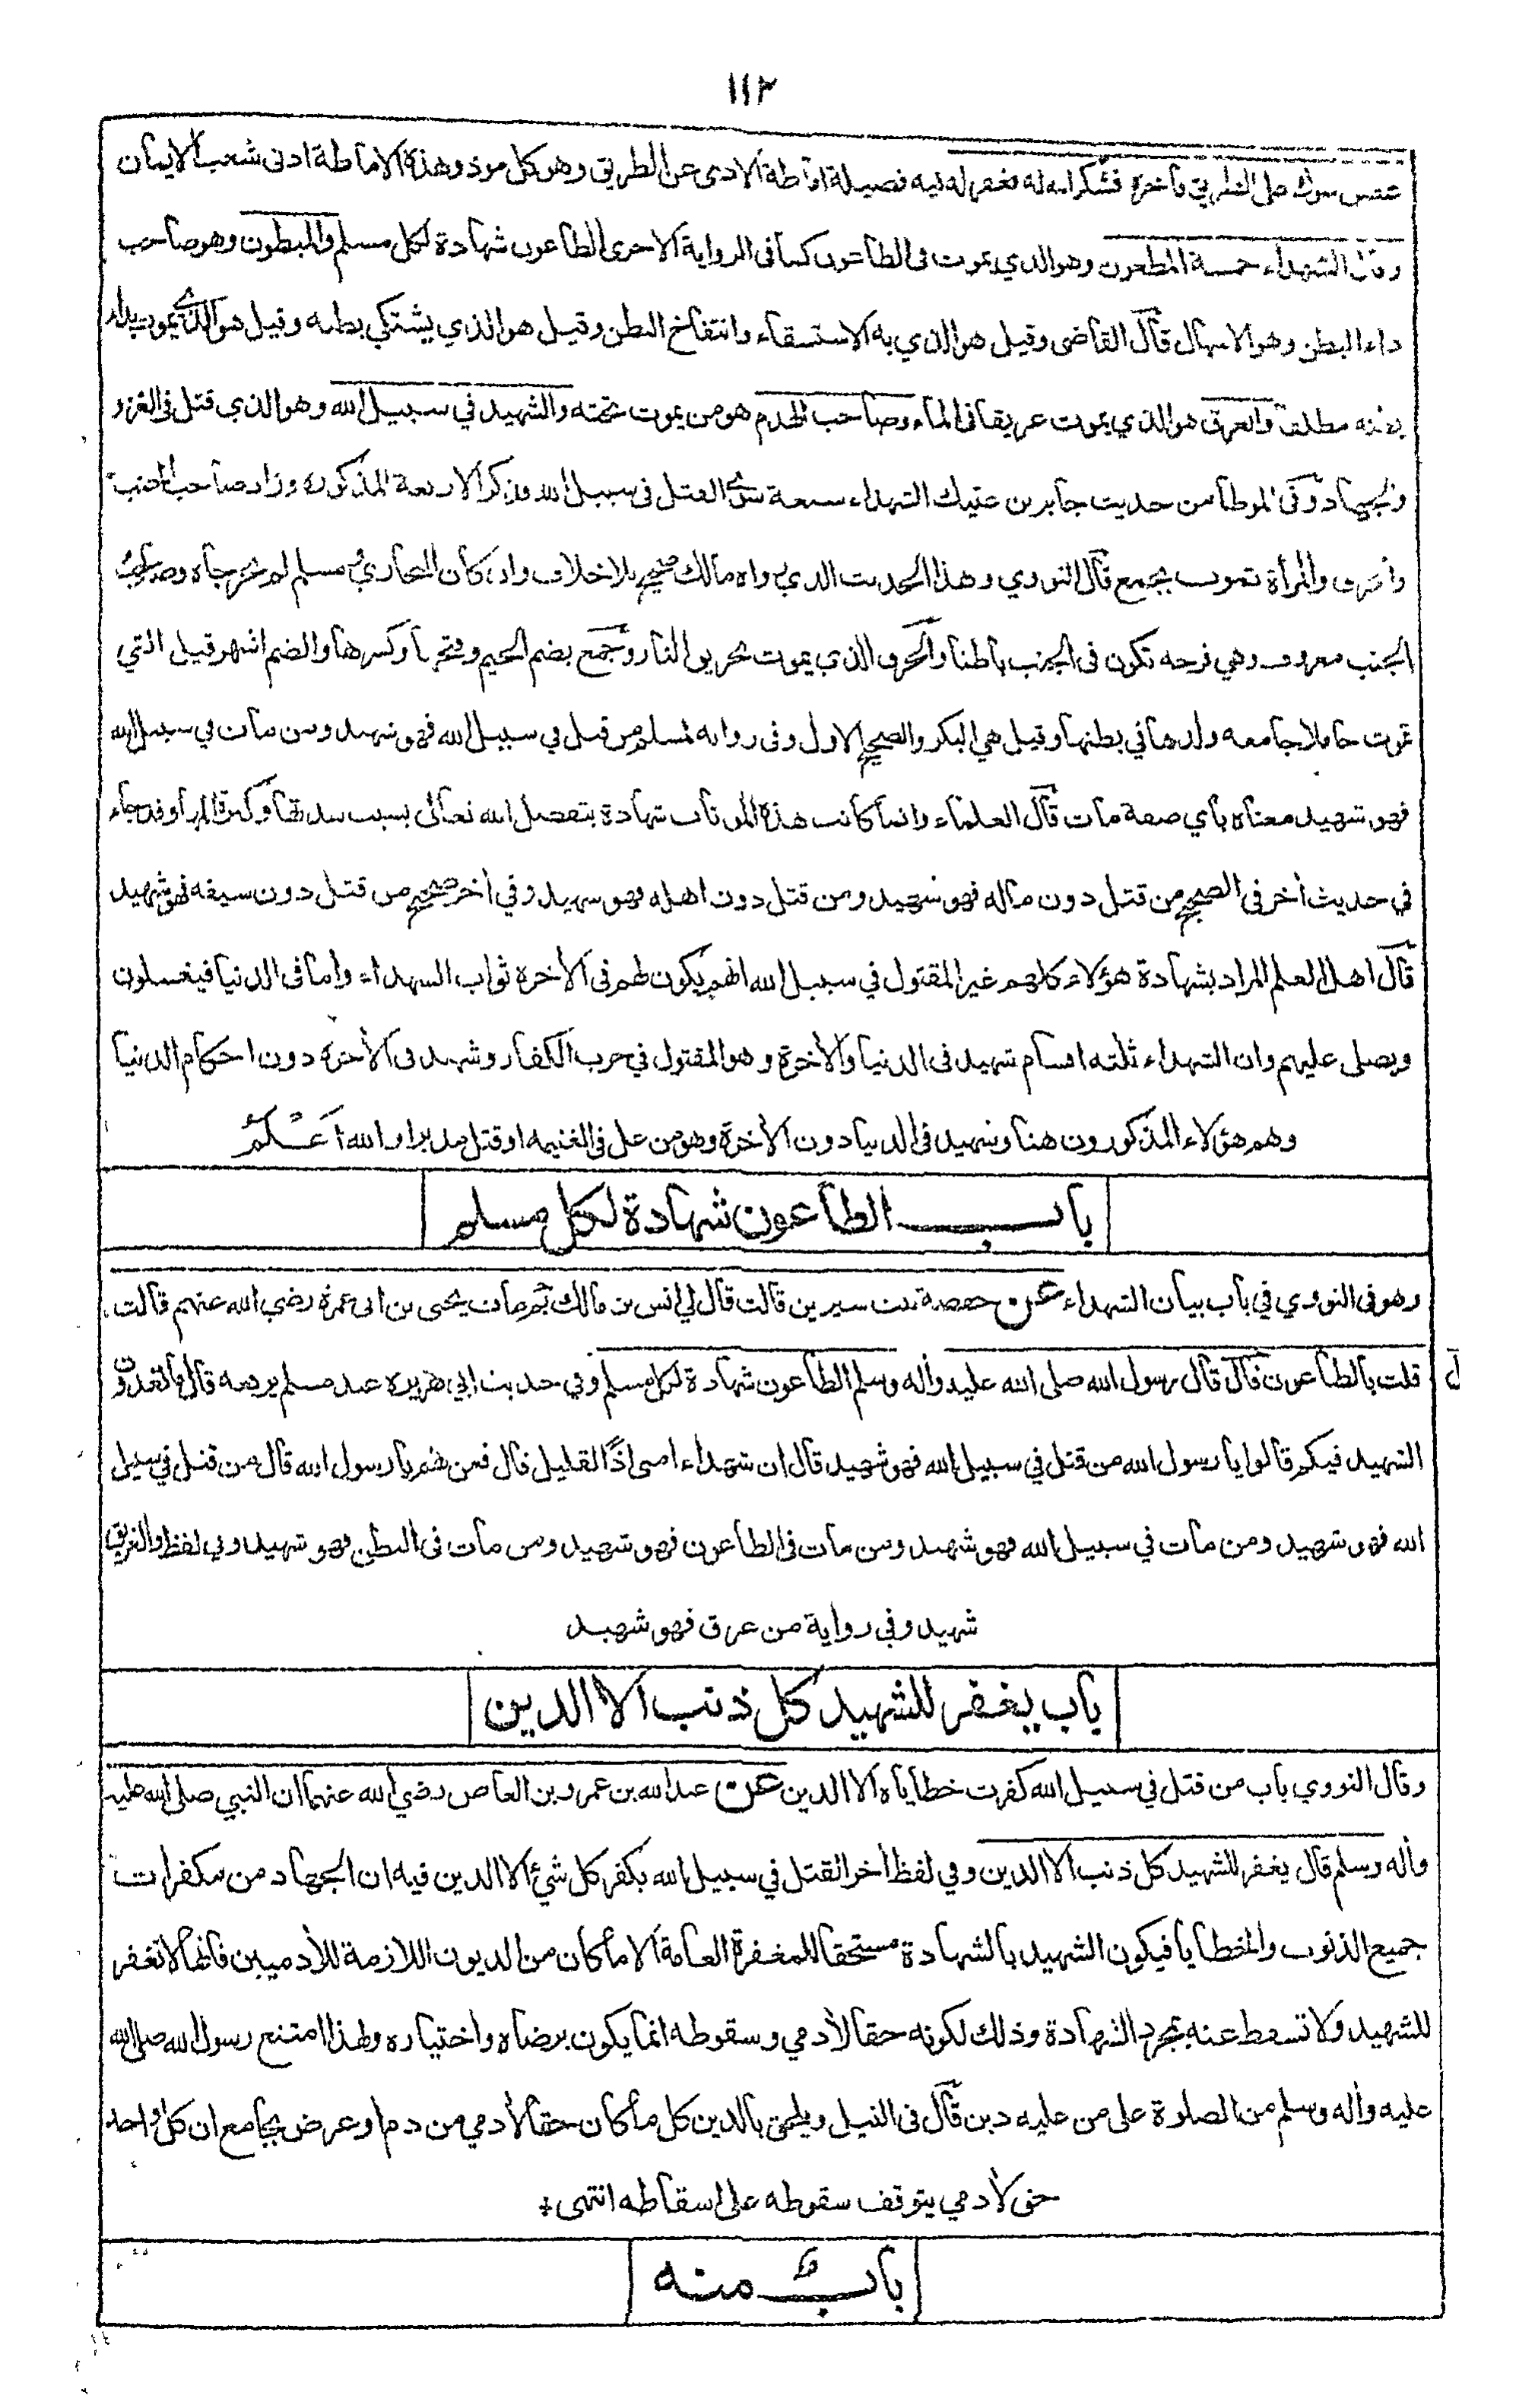 ١١٢
غصن شوك على الطريق فأخره فشكر الله له فغفر له فيه فضيلة اماطة الاذى عن الطريق وهو كل موذ وهذه الاماطة ادنى شعب الايمان
وقال الشهداء خمسة المطعون وهو الذي يموت فى الطاعون كما فى الرواية الاخرى الطاعون شهادة لكل مسلم والمبطون وهو صاحب
داء البطن وهو الاسهال قال القاضى وقيل هو الذي به الاستسقاء وانتفاخ البطن وقيل هو الذي يشتكي بطنه وقيل هو الذي يموت بداء
بطنه مطلقا والغرق هو الذي يموت غريقا فى الماء وصاحب الهدم هو من يموت تحته والشهيد في سبيل الله وهو الذي قتل فى الغزو
والجهاد وفى الموطا من حديث جابر بن عتيك الشهداء سبعة سوى القتل فى سبيل الله فذكر الاربعة المذكورة وزاد صاحب الجنب
والحرق والمرأة تموت بجمع قال النووي وهذا الحديث الذي رواه مالك صحيح بلا خلاف وان كان البخاري ومسلم لم يخرجاه وصاحب
الجنب معروف وهي قرحه تكون فى الجنب باطنا والحرق الذي يموت بحريق النار وجمع بضم الجيم وفتحها وكسرها والضم اشهر قيل التي
تموت حاملا جامعه ولدها في بطنها وقيل هي البكر والصحيح الاول وفى رواية لمسلم من قتل في سبيل الله فهو شهيد ومن مات في سبيل الله
فهو شهيد معناه بأي صفة مات قال العلماء وانما كانت هذه الموتات شهادة بتفضل الله تعالى بسبب شدتها وكثرة المها وقد جاء
في حديث أخر فى الصحيح من قتل دون ماله فهو شهيد ومن قتل دون اهله فهو شهيد وفي أخر صحيح من قتل دون سيفه فهو شهيد
قال اهل العلم المراد بشهادة هؤلاء كلهم غير المقتول في سبيل الله انهم يكون لهم فى الأخرة ثواب الشهداء واما فى الدنيا فيغسلون
ويصلى عليهم وان الشهداء ثلثه اقسام شهيد فى الدنيا والأخرة وهو المقتول في حرب الكفار وشهيد فى الأخرة دون احكام الدنيا
وهم هؤلاء المذكورون هنا وشهيد فى الدنيا دون الأخرة وهو من غل فى الغنيمه او قتل مدبرا والله اَعْلَمُ
باب الطاعون شهادة لكل مسلم
وهو فى النووي في باب بيان الشهداء عن حفصة بنت سيرين قالت قال لي انس بن مالك بم مات يحيى بن ابى عمرة رضي الله عنهم قالت
قلت بالطاعون قال قال رسول الله صلى الله عليه وأله وسلم الطاعون شهادة لكل مسلم وفي حديث ابي هريره عند مسلم يرفعه قال ما تعدون
الشهيد فيكم قالوا يا رسول الله من قتل في سبيل الله فهو شهيد قال ان شهداء امتى اذًا لقليل قال فمن هم يا رسول الله قال من قتل في سبيل
الله فهو شهيد ومن مات في سبيل الله فهو شهيد ومن مات فى الطاعون فهو شهيد ومن مات فى البطن فهو شهيد وفي لفظ والغريق
شهيد وفي رواية من غرق فهو شهيد
باب يغفر للشهيد كل ذنب الا الدين
وقال النووي باب من قتل في سبيل الله كفرت خطاياه الا الدين عن عبد الله بن عمرو بن العاص رضي الله عنهما ان النبي صلى الله عليه
وأله وسلم قال يغفر للشهيد كل ذنب الا الدين وفي لفظ أخر القتل في سبيل الله يكفر كل شئ الا الدين فيه ان الجهاد من مكفرات
جميع الذنوب والخطايا فيكون الشهيد بالشهادة مستحقا للمغفرة العامة الا ما كان من الديون اللازمة للأدميين فانها لا تغفر
للشهيد ولا تسقط عنه بمجرد الشهادة وذلك لكونه حقا لأدمي وسقوطه انما يكون برضاه واختياره ولهذا امتنع رسول الله صلى الله
عليه وأله وسلم من الصلوة على من عليه دين قال فى النيل ويلحق بالدين كل ما كان حقا لأدمي من دم او عرض بجامع ان كل واحد
حق لأدمي يتوقف سقوطه على اسقاطه انتهى +
باب منه